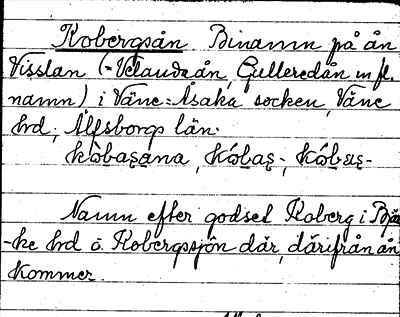 Kobergsån Binamn på ån
Visslan (-Velandaån, Gulleredån m fl.
namn) i Väne-Åsaka socken, Väne
hd, Älfsborgs län.
kòbaṣana, kóbaṣ-, kóbɛṣ-
Namn efter godset Koberg i Bjär
-ke hd o. Kobergssjön där, därifrån ån
kommer.